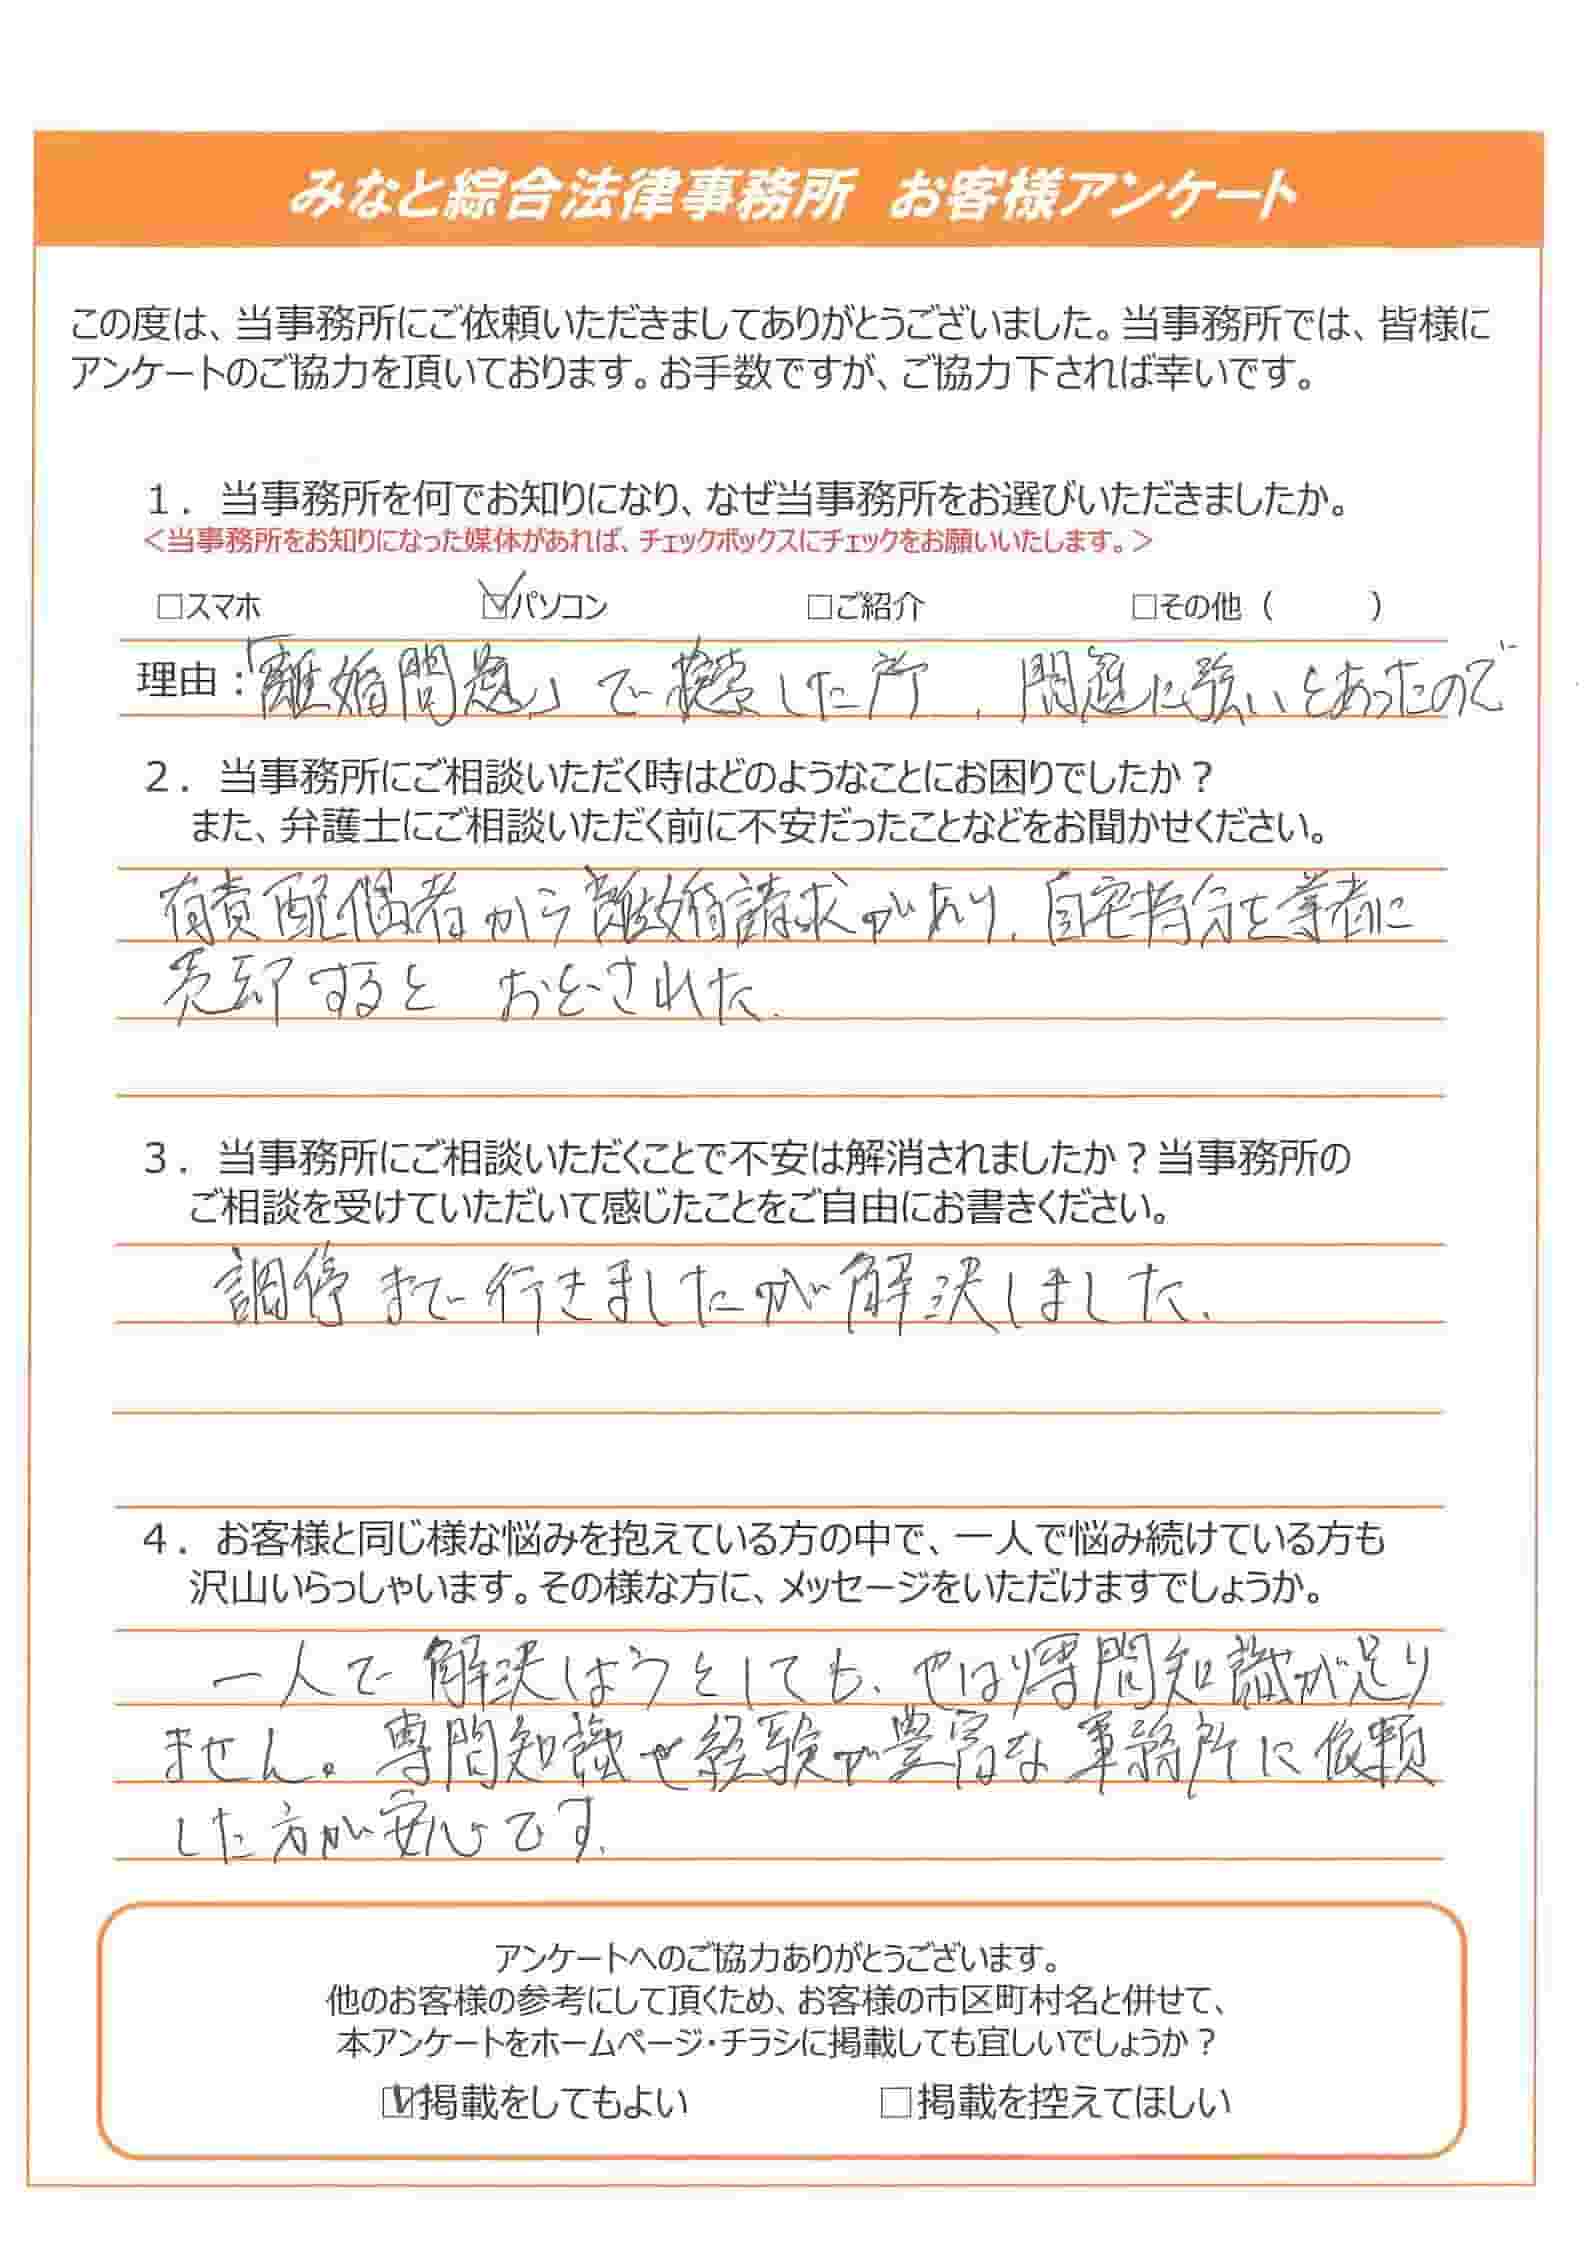 みなと綜合法律事務所 お客様アンケート
この度は、当事務所にご依頼いただきましてありがとうございました。当事務所では、皆様に
アンケートのご協力を頂いております。お手数ですが、ご協力下されば幸いです。
1. 当事務所を何でお知りになり、なぜ当事務所をお選びいただきましたか。
<当事務所をお知りになった媒体があれば、チェックボックスにチェックをお願いいたします。>
□スマホ ☑パソコン □ご紹介 □その他( )
理由:「離婚問題」で検索した所、問題に強いとあったので
2. 当事務所にご相談いただく時はどのようなことにお困りでしたか?
また、弁護士にご相談いただく前に不安だったことなどをお聞かせください。
有責配偶者から離婚請求があり、自宅持分を業者に
売却するとおどされた。
3. 当事務所にご相談いただくことで不安は解消されましたか?当事務所の
ご相談を受けていただいて感じたことをご自由にお書きください。
調停まで行きましたが解決しました。
4. お客様と同じ様な悩みを抱えている方の中で、一人で悩み続けている方も
沢山いらっしゃいます。その様な方に、メッセージをいただけますでしょうか。
一人で解決しようとしても、やはり専門知識が足り
ません。専門知識や経験が豊富な事務所に依頼
した方が安心です。
アンケートへのご協力ありがとうございます。
他のお客様の参考にして頂くため、お客様の市区町村名と併せて、
本アンケートをホームページ・チラシに掲載しても宜しいでしょうか?
☑掲載をしてもよい □掲載を控えてほしい